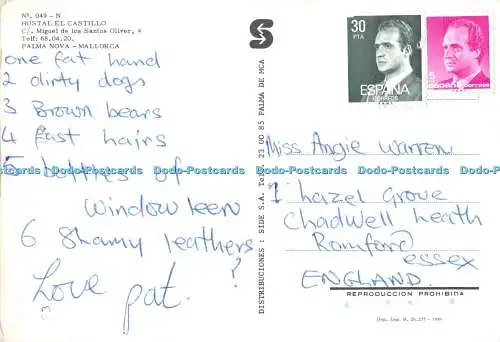 Nº. 049 - N
HOSTAL EL CASTILLO
C/. Miguel de los Santos Oliver, 4
Telf: 68.04.20.
PALMA NOVA - MALLORCA
one fat hand
2 dirty dogs
3 Brown bears
4 fast hairs
5 bottles of
window leen
6 Shamy leathers
?
Love pat.
DISTRIBUCIONES: SIDE S.A. Tel. 23 00 85 PALMA DE MCA
S
30
PTA
ESPAÑA
CORREOS
5
ESPAÑA correos
Miss Angie Warren
1 hazel Grove
Chadwell heath
Romford
essex
ENGLAND.
REPRODUCCION PROHIBIDA
Dodo-Postcards Dodo-Postcards Dodo-Postcards Dodo-Postcards Dodo-Postcards